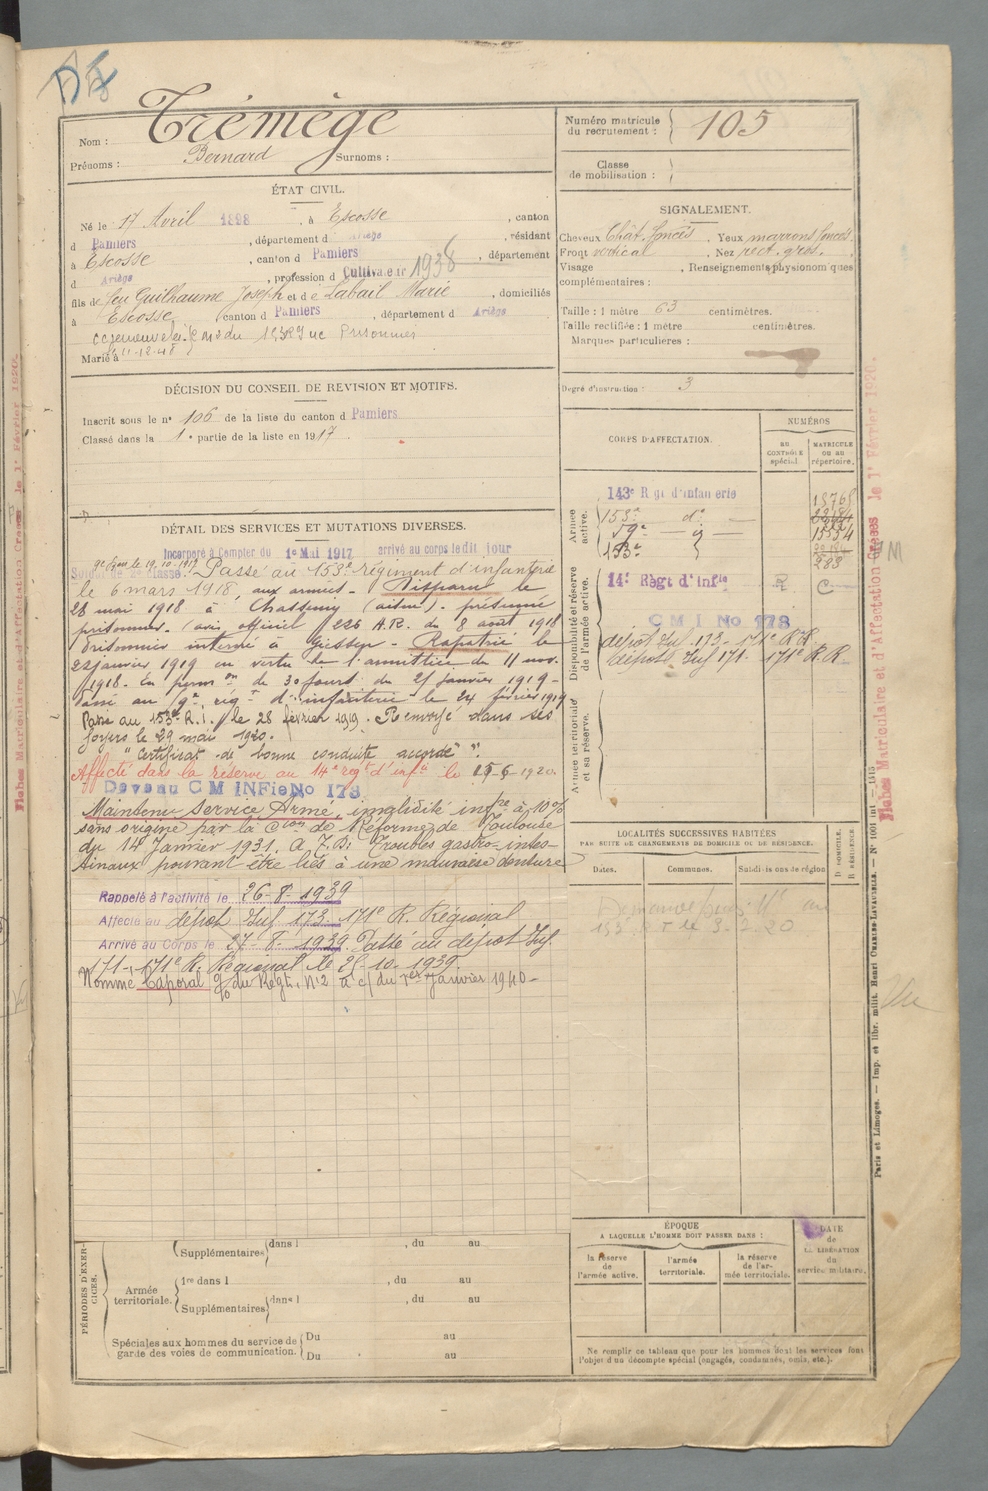 Nom : Trémège
Prénoms : Bernard Surnoms :
Numéro matricule du recrutement : 105
Classe de mobilisation :
ÉTAT CIVIL.
Né le 17 Avril 1898, à Escosse, canton
d Pamiers, département d Ariège, résidant
à Escosse, canton d Pamiers, département
d Ariège, profession d Cultivateur 1938
fils de feu Guilhaume Joseph et de Labail Marie, domiciliés
à Escosse, canton d Pamiers, département d Ariège
Marié à
SIGNALEMENT.
Cheveux Chât. foncés. Yeux marrons foncés.
Front vertical, Nez rect. gros.
Visage, Renseignements physionomiques
complémentaires :
Taille : 1 mètre 63 centimètres.
Taille rectifiée : 1 mètre centimètres.
Marques particulières :
Degré d'instruction : 3
DÉCISION DU CONSEIL DE REVISION ET MOTIFS.
Inscrit sous le n° 106 de la liste du canton d Pamiers
Classé dans la 1e partie de la liste en 1917.
DÉTAIL DES SERVICES ET MUTATIONS DIVERSES.
Incorporé à Compter du 1er Mai 1917 arrivé au corps le dit jour
Soldat de 2e classe. Passé au 153e régiment d'infanterie
le 6 mars 1918, aux armées. Disparu le
28 mai 1918 à Chassemy (aisne). présumé
prisonnier. (avis officiel 226 A.R. du 8 août 1918
Prisonnier interné à Giessen. Rapatrié le
22 janvier 1919 en vertu de l'armistice du 11 nov.
1918. En perm on de 30 jours du 25 janvier 1919 -
Passé au 9e rég t d'infanterie le 24 février 1919
Passé au 153e R.I. le 28 février 1919. Renvoyé dans ses
foyers le 29 mai 1920.
"Certificat de bonne conduite accordé".
Affecté dans la réserve au 14e régt d'infie le 15-6-1920
Devenu C M INFie No 178
Maintenu Service Armé, invalidité infre à 10%
sans origine par la Cion de Réforme de Toulouse
du 14 Janvier 1931. Troubles gastro-intes-
tinaux pouvant être liés à une mauvaise denture
Rappelé à l'activité le 26-8-1939
Affecté au dépôt Inf 173 - 171e R. Régional
Arrivé au Corps le 27-8-1939. Passé au dépôt Inf.
171 - 171e R. Régional le 25-10-1939.
Nommé Caporal du Régt. N°2 à c/ du 1er Janvier 1940 -
CORPS D'AFFECTATION.
NUMÉROS
AU CONTRÔLE spécial.
MATRICULE ou au répertoire.
Armée active.
143e Rgt d'infanterie
153e - do -
153e
Disponibilité et réserve de l'armée active.
14e Régt d'Infie
C M I No 178
dépôt Inf 173 - 171e R.R.
dépôt Inf 171 - 171e R.R.
Armée territoriale et sa réserve.
LOCALITÉS SUCCESSIVES HABITÉES
PAR SUITE DE CHANGEMENTS DE DOMICILE OU DE RÉSIDENCE.
Dates.
Communes.
Subdivisions de région
D DOMICILE.
R RÉSIDENCE.
PÉRIODES D'EXERCICES.
Supplémentaires dans l , du au
Armée territoriale.
1re dans l , du au
Supplémentaires dans l , du au
Spéciales aux hommes du service de garde des voies de communication.
Du au
Du au
ÉPOQUE
A LAQUELLE L'HOMME DOIT PASSER DANS :
la réserve de l'armée active.
l'armée territoriale.
la réserve de l'armée territoriale.
DATE de LA LIBÉRATION du service militaire.
Ne remplir ce tableau que pour les hommes dont les services font
l'objet d'un décompte spécial (engagés, condamnés, omis, etc.).
Fiches Matriculaire et d'Affectation Créées le 1er Février 1920.
Paris et Limoges. — Imp. et libr. milit. Henri CHARLES-LAVAUZELLE.